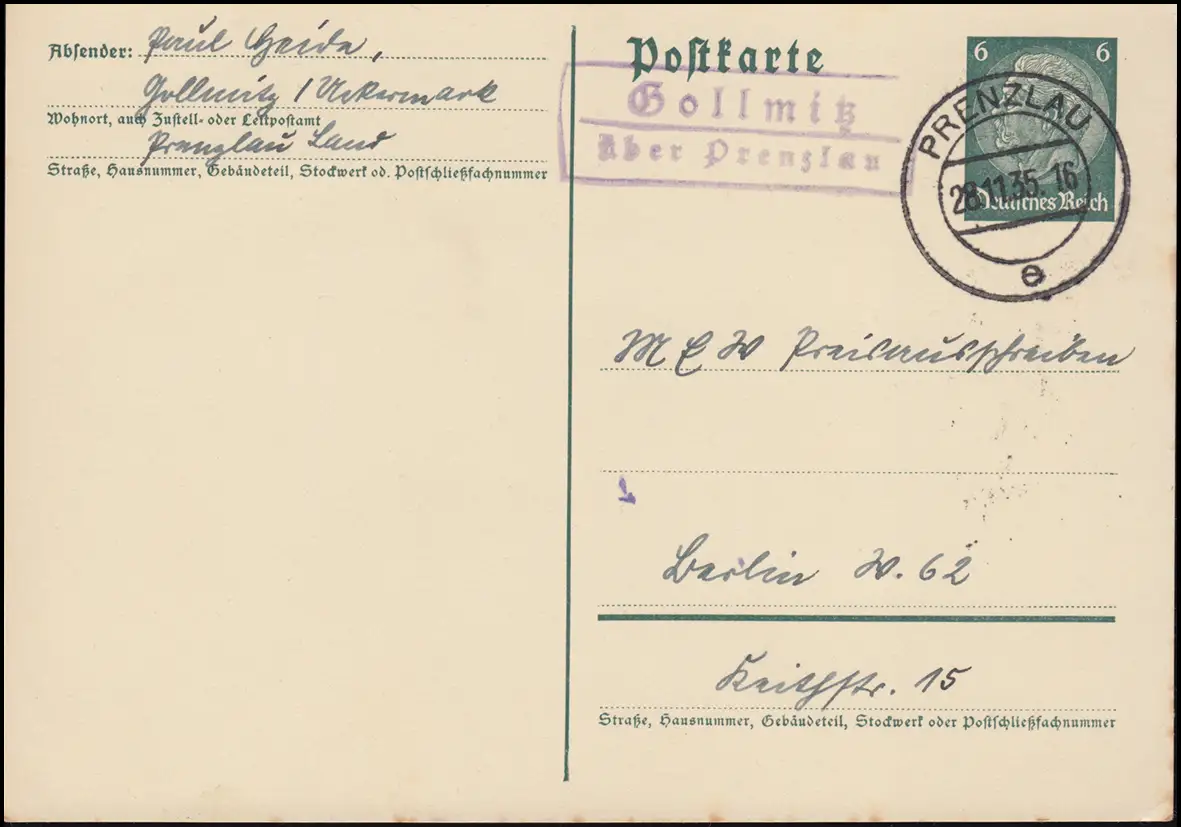 Absender: Paul Heida,
Gollmitz / Uckermark
Wohnort, auch Zustell- oder Leitpostamt
Prenzlau Land
Straße, Hausnummer, Gebäudeteil, Stockwerk od. Postschließfachnummer
Postkarte
Gollmitz
über Prenzlau
6 6
Deutsches Reich
PRENZLAU
28.11.35. 16
e
M E W Preisausschreiben
Berlin W. 62
Keithstr. 15
Straße, Hausnummer, Gebäudeteil, Stockwerk oder Postschließfachnummer